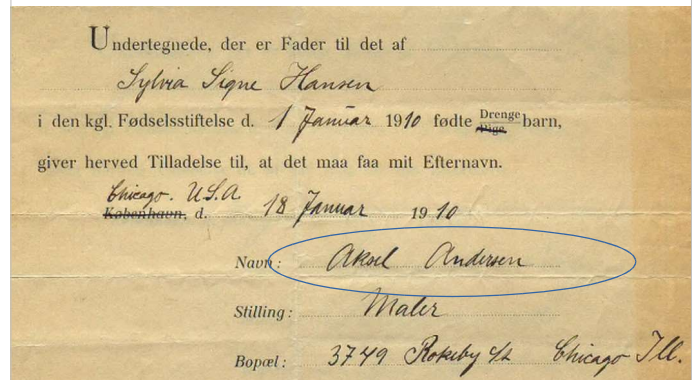 Undertegnede, der er Fader til det af
Sylvia Signe Hansen
i den kgl. Fødselsstiftelse d. 1 Januar 1910 fødte Drenge Pige barn,
giver herved Tilladelse til, at det maa faa mit Efternavn.
Chicago. U.S.A
København, d. 18 Januar 1910
Navn: Aksel Andersen
Stilling: Maler
Bopæl: 3749 Rokeby St Chicago Ill.